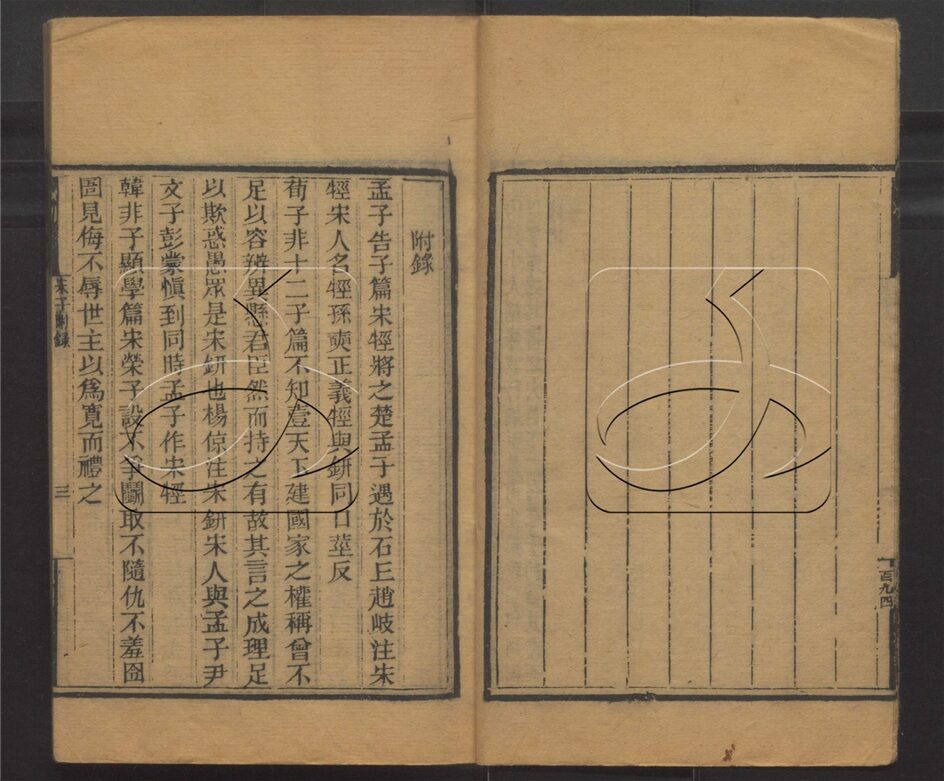 百九四
附錄
孟子告子篇宋牼將之楚孟子遇於石丘趙岐注宋
牼宋人名牼孫奭正義牼與鈃同口莖反
荀子非十二子篇不知壹天下建國家之權稱曾不
足以容辨異縣君臣然而持之有故其言之成理足
以欺惑愚眾是宋鈃也楊倞注宋鈃宋人與孟子尹
文子彭蒙慎到同時孟子作宋牼
韓非子顯學篇宋榮子設不爭鬬取不隨仇不羞囹
圄見侮不辱世主以為寬而禮之
宋子附錄
三